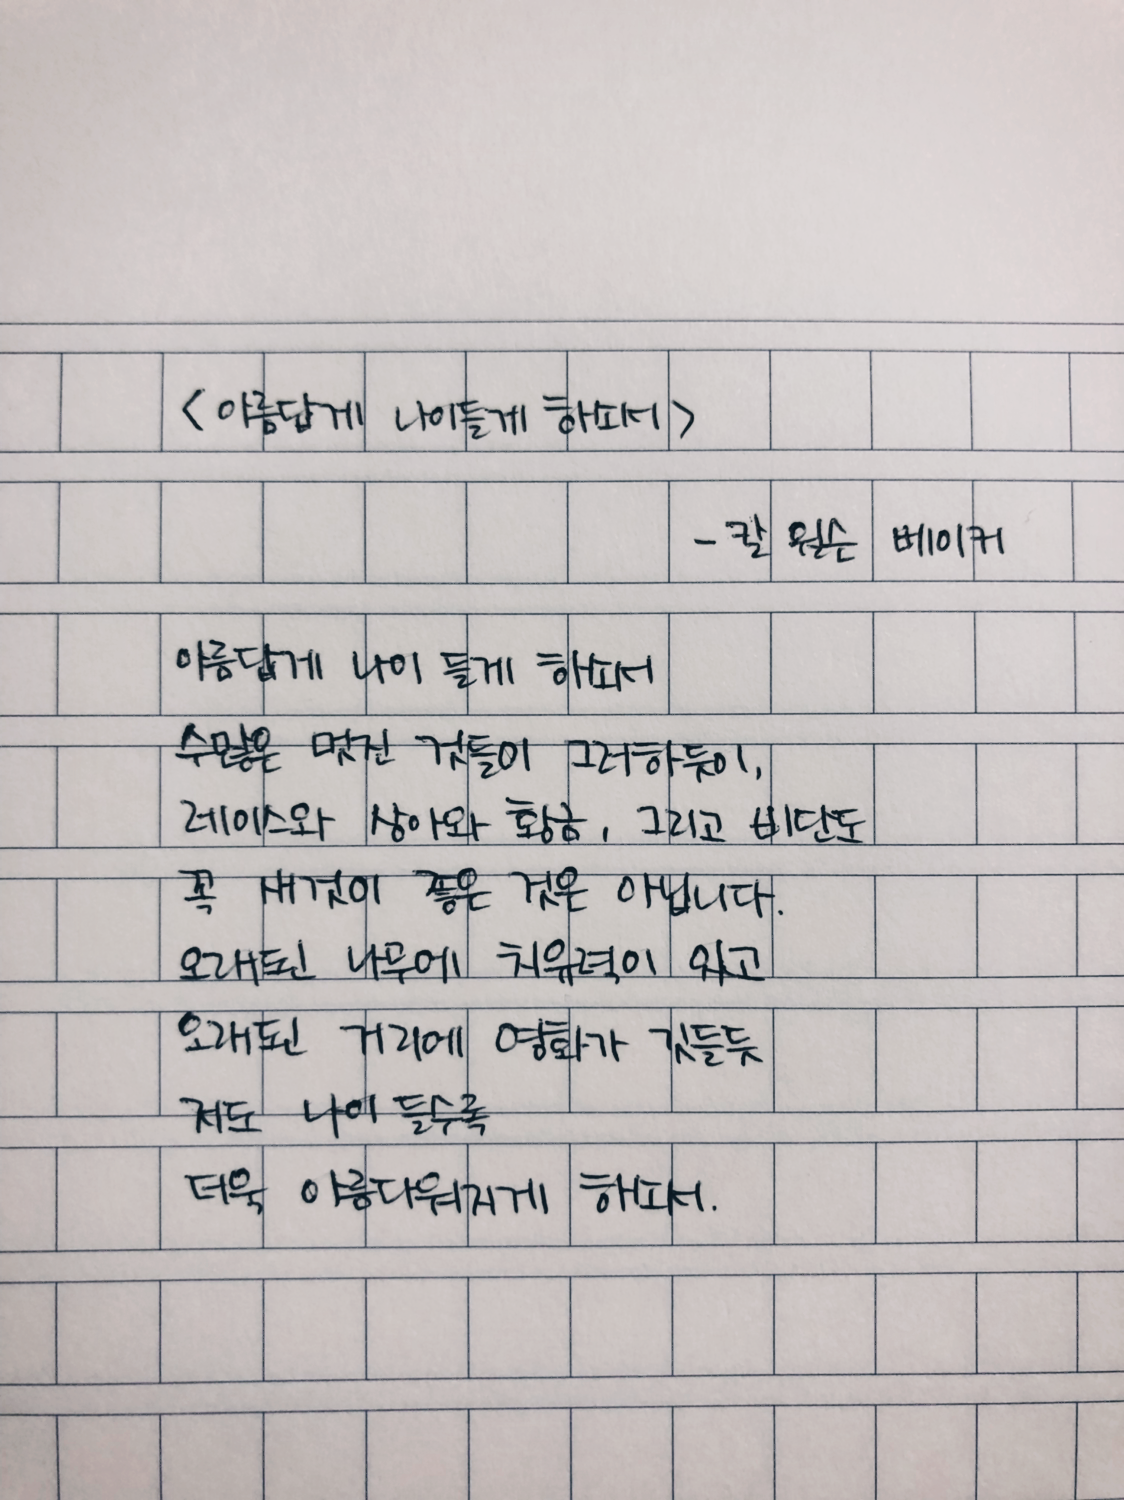 <아름답게 나이들게 하소서>
- 칼 윌슨 베이커
아름답게 나이 들게 하소서
수많은 멋진 것들이 그러하듯이,
레이스와 상아와 황금, 그리고 비단도
꼭 새것이 좋은 것은 아닙니다.
오래된 나무에 치유력이 있고
오래된 거리에 영화가 깃들듯
저도 나이 들수록
더욱 아름다워지게 하소서.